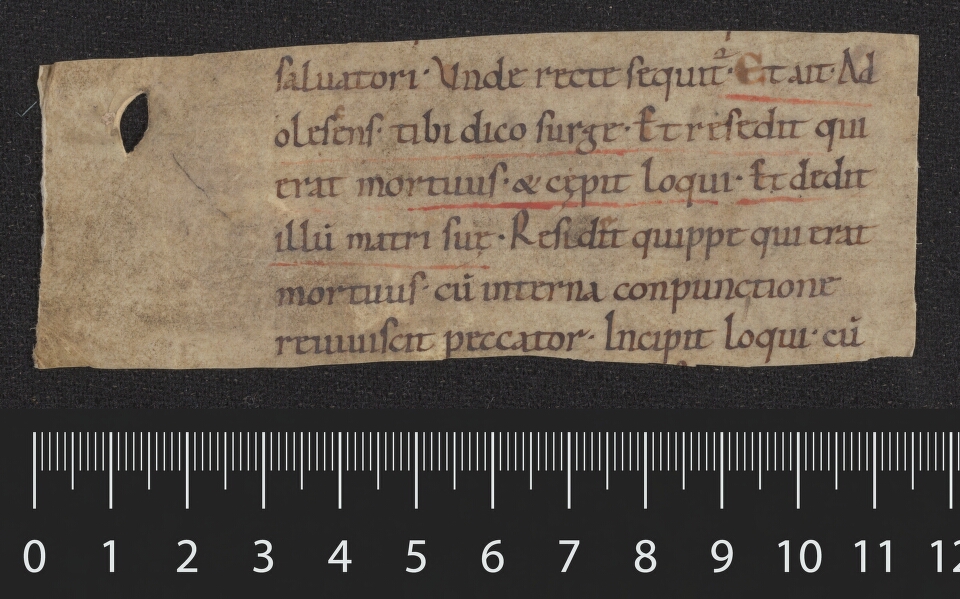 saluatori· Vnde recte sequit᷑· Et ait· Ad
olescens· tibi dico surge· Et resedit qui
erat mortuus· & cępit loqui· Et dedit
illū matri suę· Resid&t quippe qui erat
mortuus· cū interna conpunctione
reuiuiscit peccator· Incipit loqui· cū
0 1 2 3 4 5 6 7 8 9 10 11 12